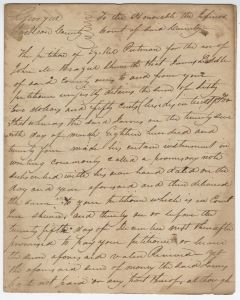 Georgia To the Honorable the Inferior
Jackson County Court of said County
The petition of Ezekiel Putman for the use of
John A. sheweth that James
of said County to and from your
petitioner unjustly detains the sum of fifty
two dollars and fifty cents besides interest
that whereas the said James on the twenty
day of March eighteen hundred and
twenty four made his certain instrument in
writing commonly called a promissory note
subscribed with his own hand dated on the
day and year aforesaid and then delivered
the same to your petitioner which is in Court
be shewn and thereby on or before the
twenty fifth day of December next thereafter
promised to pay your petitioner or bearer
the sum aforesaid value Received yet
the aforesaid sum of money the said James
hath not paid or any part thereof although